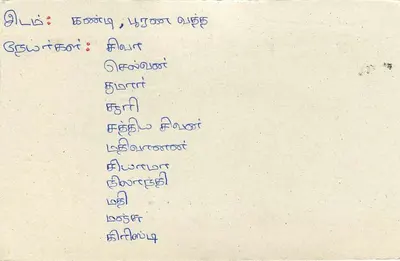 இடம்: கண்டி, பூரண வத்த
நேயர்கள்: சிவா
செல்வன்
குமார்
சூரி
சத்திய சிவன்
மதிவாணன்
சியாமா
நிலாநதி
மதி
மஞ்சு
கிறிஸ்டி